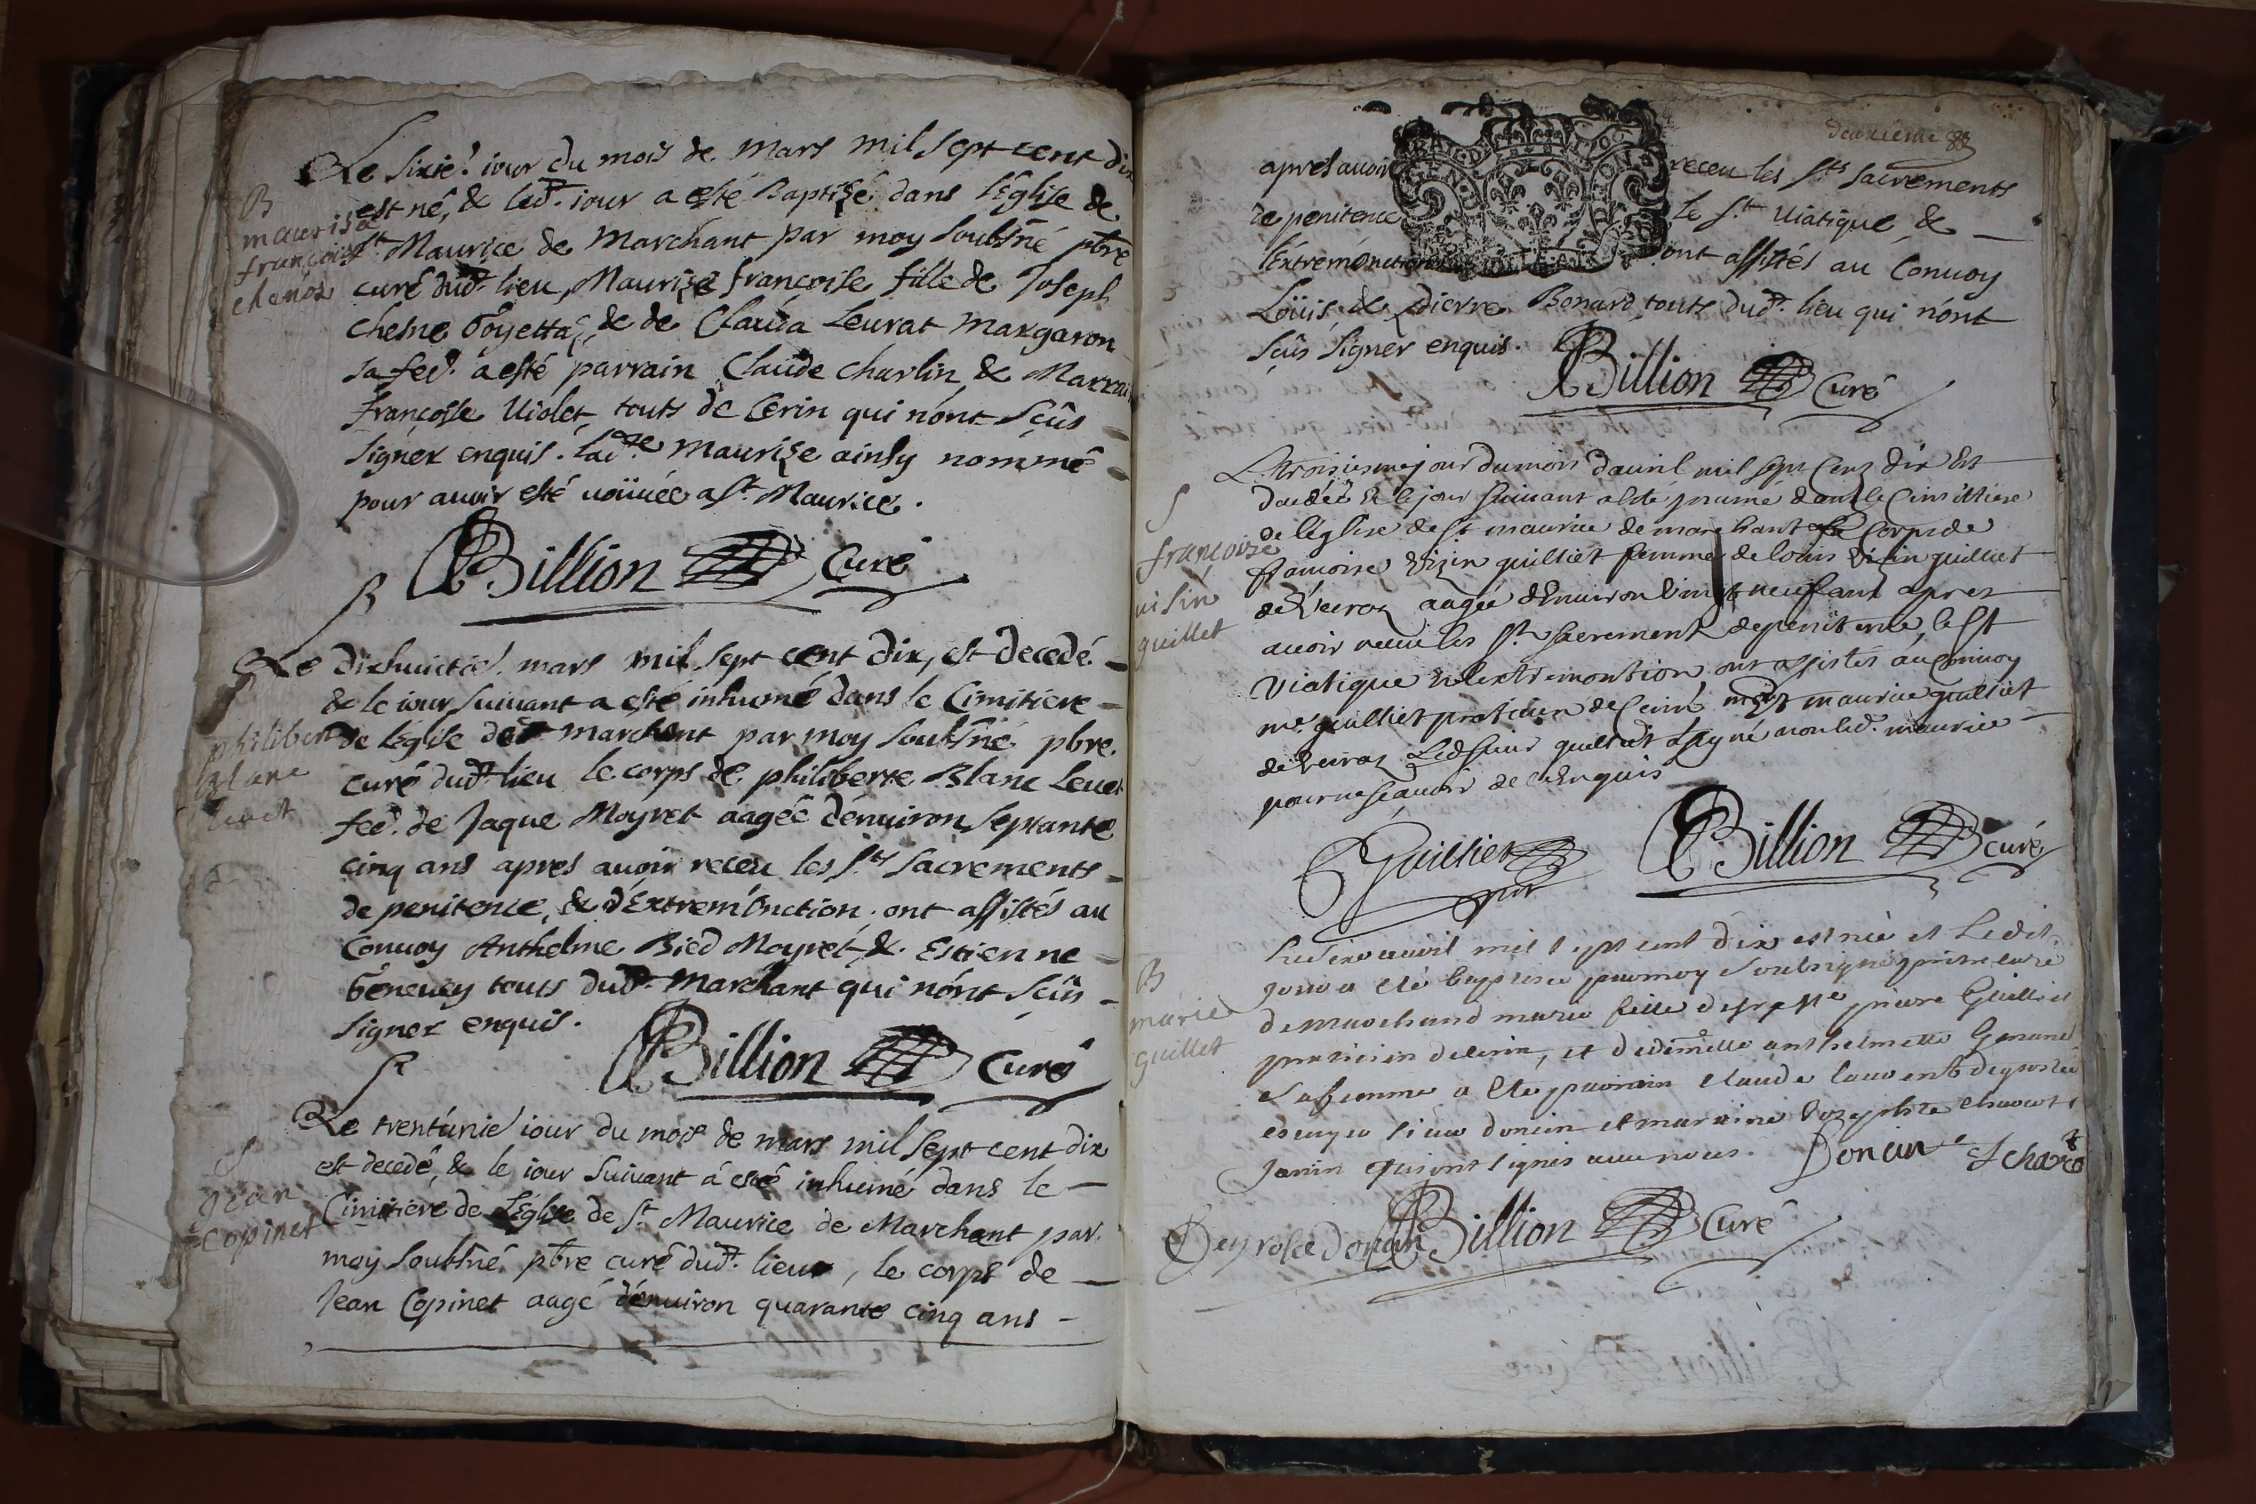 Le sixie.^e iour du mois de mars mil sept cent dix
est né, & led.^t iour a esté Baptizé dans l'Eglise de
B
maurise
françoise
chenoz
S^t Maurice de Marchant par moy soubs^né pbre
curé dud.^t lieu, Maurize françoise fille de Joseph
Chesne Goyetta, & de Clauda Leurat Margaron
sa fe^e. a esté parrain Claude Charlin, & Marrai
françoise Violet, touts de Cerin qui n'ont sçûs
signer enquis. lad.^te maurize ainsy nommé
pour auoir esté uoüuée a S^t. Maurice.
Billion Curé
Le dixhuictie.^e mars mil sept cent dix, est decedé
& le iour suiuant a esté inhumé dans le Cimitiere
S
philiberte
blanc
leuet
de l'Eglise de marchant par moy soubs^né pbre.
curé dud^t lieu le corps de philiberte Blanc Leuet
fe^e. de Jaque Moyret aagée d'enuiron septante
cinq ans apres auoir receu les S.^ts sacrements
de penitence, & d'Extremónction. ont assistés au
Conuoy Anthelme Bied Moyret, & Estienne
Geneuey touts dud^t. Marchant qui n'ont sçûs
signer enquis.
Billion Curé
Le trentúnie iour du mois de mars mil sept cent dix
est decedé, & le iour suiuant á esté inhumé dans le
S
jean
copinet
Cimitiere de l'Eglise de S^t Maurice de Marchant par
moy soubs^né pbre curé dud^t. lieu, le corps de
Jean Copinet aagé d'enuiron quarante cinq ans
deuxieme
apres auoir receu les S^ts sacrements
de penitence le S.^t Uiatique &
l'Extremónction ont assistés au Conuoy
Loüis, & Pierre Bonard, touts dud^t. lieu qui n'ont
sçûs signer enquis.
Billion Curé
Le troisiesme jour du mois d'auril mil sept cens dix est
decedée & le jour suiuant a esté inhumé dans le cimittiere
S
françoize
uisin
guillet
de l'eglise de S^t maurice de marchant le corps de
francoise Vizin guilliet femme de louis Vizin guilliet
de aagée d'enuiron vingt neuf ans apres
auoir receu les S^t. sacrement de penitence, le S^t
Viatique & l'extremontion ont assistés au conuoy
m^e. guilliet praticien de Cerin maurice guilliet
de Led sieur guilliet a signé non led. maurice
pour ne sçauoir de ce enquis
Guilliet Billion curé
Le dixe auvril mil sept cent dix est née et Ledit
B
marie
guillet
jour a eté baptisée par moy soubsigné prêtre curé
de marchand marie fille de pierre Guilliet
praticien de cerin, et de demoi^elle anthelmette
sa femme a eté parrain claude laurent deyrolée
escuyer sieur doncin et marraine Chavot
Janin qui ont signés avec nous. Doncin
Deyrolée doncin Billion Curé